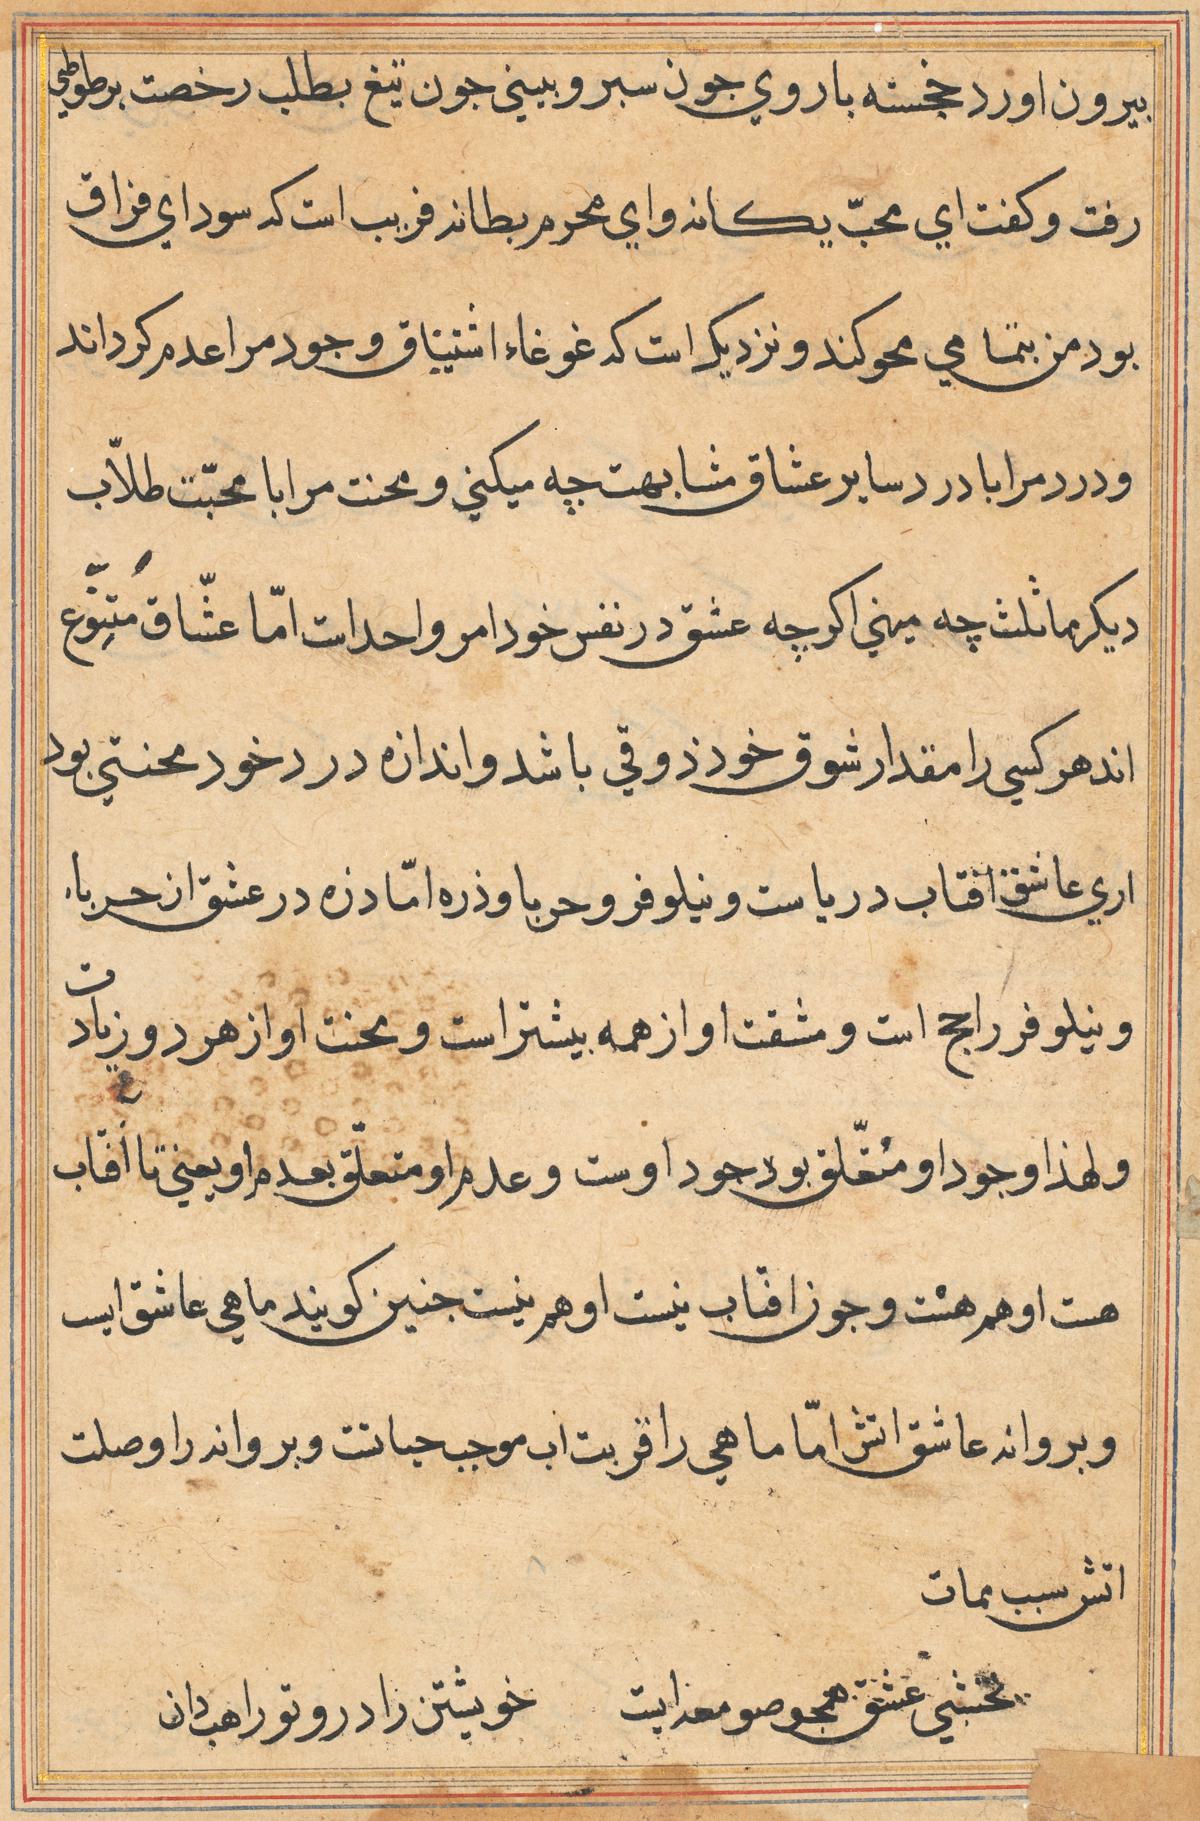 بيرون اورد خجسته با روي جون سبر و بيني جون تيغ بطلب رخصت بر طوطي
رفت و كفت اي محبّ يكانه و اي محرم بطانه قريب است كه سوداي فراق
بود من بتمامي محو كند و نزديك است كه غوغاء اشتياق وجود مرا عدم كرداند
و درد مرا با درد ساير عشاق مشابهت چه ميكني و محنت مرا با محبّت طلاّب
ديكر مماثلث چه ميني اكرچه عشق در نفس خود امر واحد است امّا عشّاق مُتنوّع
اند هر كسي را مقدار شوق خود ذوقي باشد و اندازه درد خود محنتي بود
اري عاشق افتاب درياست و نيلوفر و حربا و ذره امّا ذره در عشق از حرباء
و نيلوفر راجح است و مشقت او از همه بيشتر است و محنت او از هر دو زيادت
و لهذا وجود او متعّلق بوجود اوست و عدم او متعلّق بعدم او يعني تا افتاب
هست او هم هست و جون افتاب نيست او هم نيست جنين كويند ماهي عاشق ابست
و بروانه عاشق اتش امّا ماهي را قربت اب موجب حياتست و بروانه را وصلت
اتش سبب ممات
نخشبي عشق همجو صومعه ايست خويشتن را درو تو راهب دان